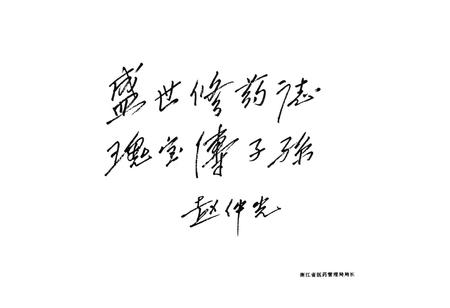 盛世修药志
瑰宝傳子孫
赵仲光
浙江省医药管理局局长